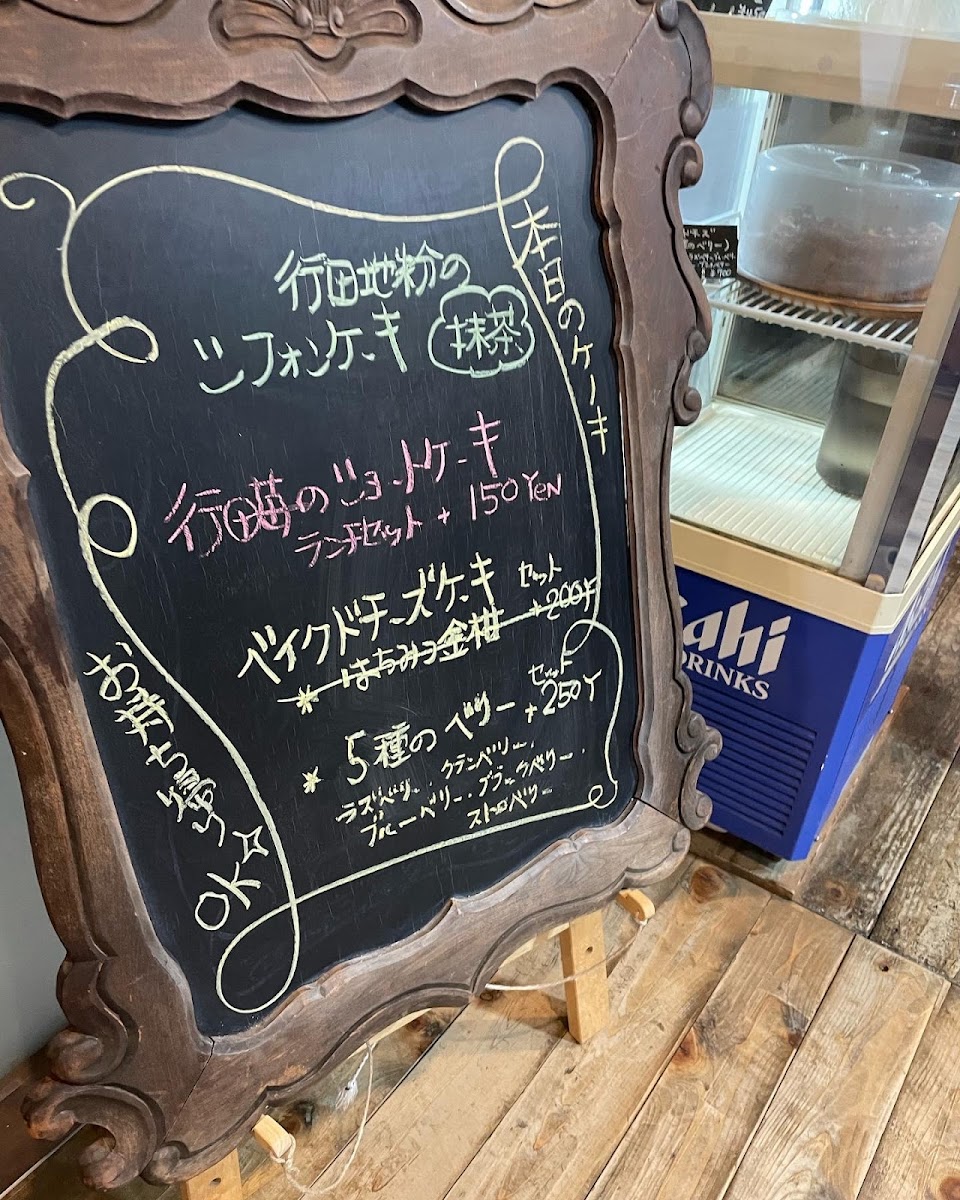 本日のケーキ
行田地粉の
シフォンケーキ 抹茶
行田苺のショートケーキ
ランチセット + 150 YEN
ベイクドチーズケーキ
* はちみつ金柑 セット +200Y
* 5種のベリー セット +250Y
ラズベリー・クランベリー・
ブルーベリー・ブラックベリー・
ストロベリー
お持ち帰りOK
Asahi
DRINKS
のベリー)
¥700